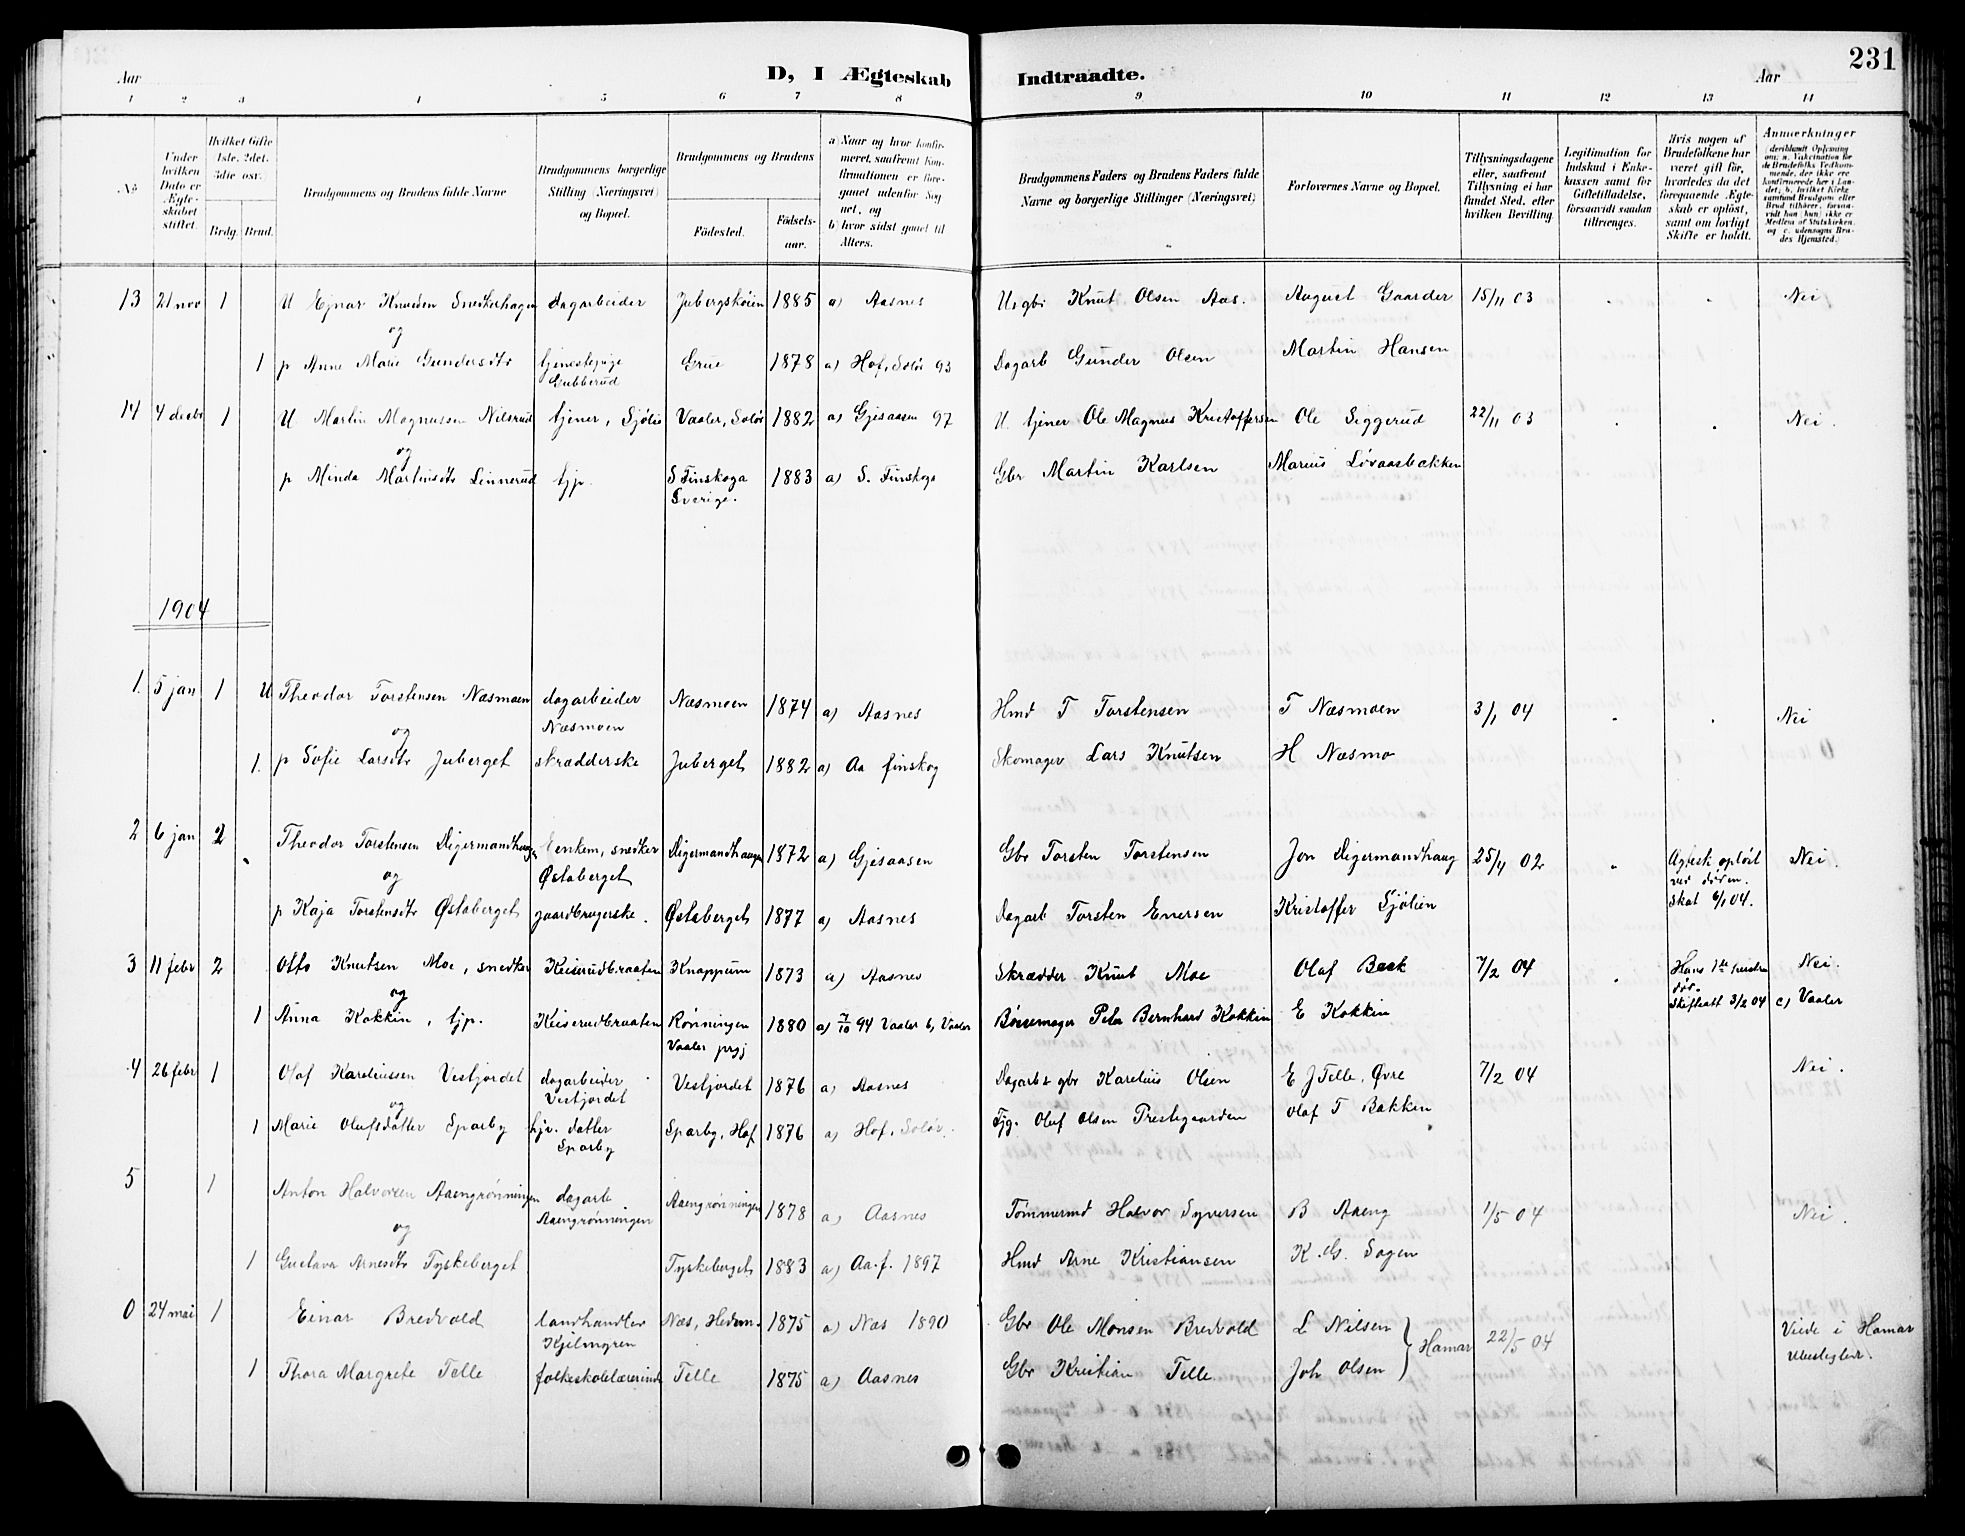 231
Aar D, I Ægteskab Indtraadte. Aar
1 2 3 4 5 6 7 8 9 10 11 12 13 14
No.
Under hvilken Dato er Ægteskabet stiftet.
Hvilket Gifte 1ste, 2det, 3die osv.
Brdg. Brud.
Brudgommens og Brudens fulde Navne
Brudgommens borgerlige Stilling (Næringsvei) og Bopæl.
Brudgommens og Brudens
Fødested. Fødsels-aar.
a) Naar og hvor konfirmeret, saafremt Konfirmationen er foregaaet udenfor Sognet, og
b) hvor sidst gaaet til Alters.
Brudgommens Faders og Brudens Faders fulde Navne og borgerlige Stillinger (Næringsvei)
Forlovernes Navne og Bopæl.
Tillysningsdagene eller, saafremt Tillysning ei har fundet Sted, efter hvilken Bevilling.
Legitimation for Indskud i Enkekassen samt for Giftetilladelse, forsaavidt saadan tiltrænges.
Hvis nogen af Brudefolkene har været gift før, hvorledes da det foregaaende Ægteskab er opløst, samt om lovligt Skifte er holdt.
Anmærkninger (deriblandt Oplysning om: a. Vakcination for de Brudefolks Vedkommende, der ikke ere konfirmerede her i Landet; b. hvilket Kirkesamfund Brudgom eller Brud tilhører, forsaavidt han (hun) ikke er Medlem af Statskirken, og c. udensogns Brudes Hjemsted.)
13 21 nov 1 U Ejnar Knudsen Snedkerhagen dagarbeider Jubergskoien 1885 a) Aasnes Usgbr Knut Olsen Aas. August Gaarder 15/11 03 Nei
og
1 p Anne Marie Gundersdtr tjenestepige Grue 1878 a) Hof, Solør 93 Dagarb Gunder Olsen Martin Hansen
Gubberud
14 4 decbr 1 U Martin Magnussen Nilsrud tjener, Sjölie Vaaler, Solør 1882 a) Gjesaasen 97 U. tjener Ole Magnus Kristoffersen Ole Siggerud 22/11 03 Nei.
og
p Minda Martinsdtr Linnerud tjp. S Finskoga 1883 a) S. Finskoga Gbr Martin Karlsen Marius Lövaasbakken
Sverige.
1904
1. 5 jan 1 U Theodor Torstensen Næsmoen dagarbeider Næsmoen 1874 a) Aasnes Hmd T Torstensen T Næsmoen 3/1 04 Nei
Næsmoen
og
1. p Sofie Larsdtr Juberget skrædderske Juberget 1882 a) Aa finskog Skomager Lars Knutsen H Næsmo
2 6 jan 2 Theodor Torstensen Digermandhaug Enkem, snedker Digermandhaugen 1872 a) Gjesaasen Gbr Torsten Torstensen Jon Digermandhaug 25/ 02 Ægtesk opløst Nei.
Østaberget ved døden.
og
p Kaja Torstensdtr Østaberget gaardbrugerske. Østaberget 1877 a) Aasnes Dagarb Torsten Enersen Kristoffer Sjölien Skat 6/1 04.
3 11 febr 2 Otto Knutsen Moe, snedker Keiserudbraaten Knappum 1873 a) Aasnes Skrædder Knut Moe Olaf Beck 7/2 04 Hans 1ste hustru Nei.
og død.
1 Anna Kokkin, tjp. Keiserudbraaten Rønningen 1880 a) 7/10 94 Vaaler b, Vaaler Børsemager Peter Bernhard Kokkin E Kokkin Skifteatt 3/2 04 c) Vaaler
Vaaler prgj
4 26 febr 1 Olaf Kareliussen Vestjordet dagarbeider Vestjordet 1876 a) Aasnes Dagarb & gbr Karelius Olsen E J Telle, Øvre 7/2 04 Nei.
Vestjordet
og
1 Marie Olufsdatter Sparby hjv. datter Sparby, Hof 1876 a) Hof, Solør. Fjg. Oluf Olsen Prestegaarden Olaf T Bakken
Sparby
5 1 Anton Halvorsen Aaengrønningen dagarb Aaengrønningen 1878 a) Aasnes Tømmermd Halvor Syversen B Aaeng 1/5 04 Nei.
Aaengrønningen
og
1 Gustava Arnesdtr Tyskeberget Tyskeberget 1883 a) Aa. f. 1897 Hmd Arne Kristiansen K. G. Sagen
0 24 mai 1 Einar Bredvold landhandler Næs, Hedem. 1875 a) Næs 1890 Gbr Ole Monsen Bredvold L Nilsen } Hamar 22/5 04 Viede i Hamar
Kjelmgren
1 Thora Margrete Telle folkeskolelærerinde Telle 1875 a) Aasnes Gbr Kristian Telle Joh Olsen